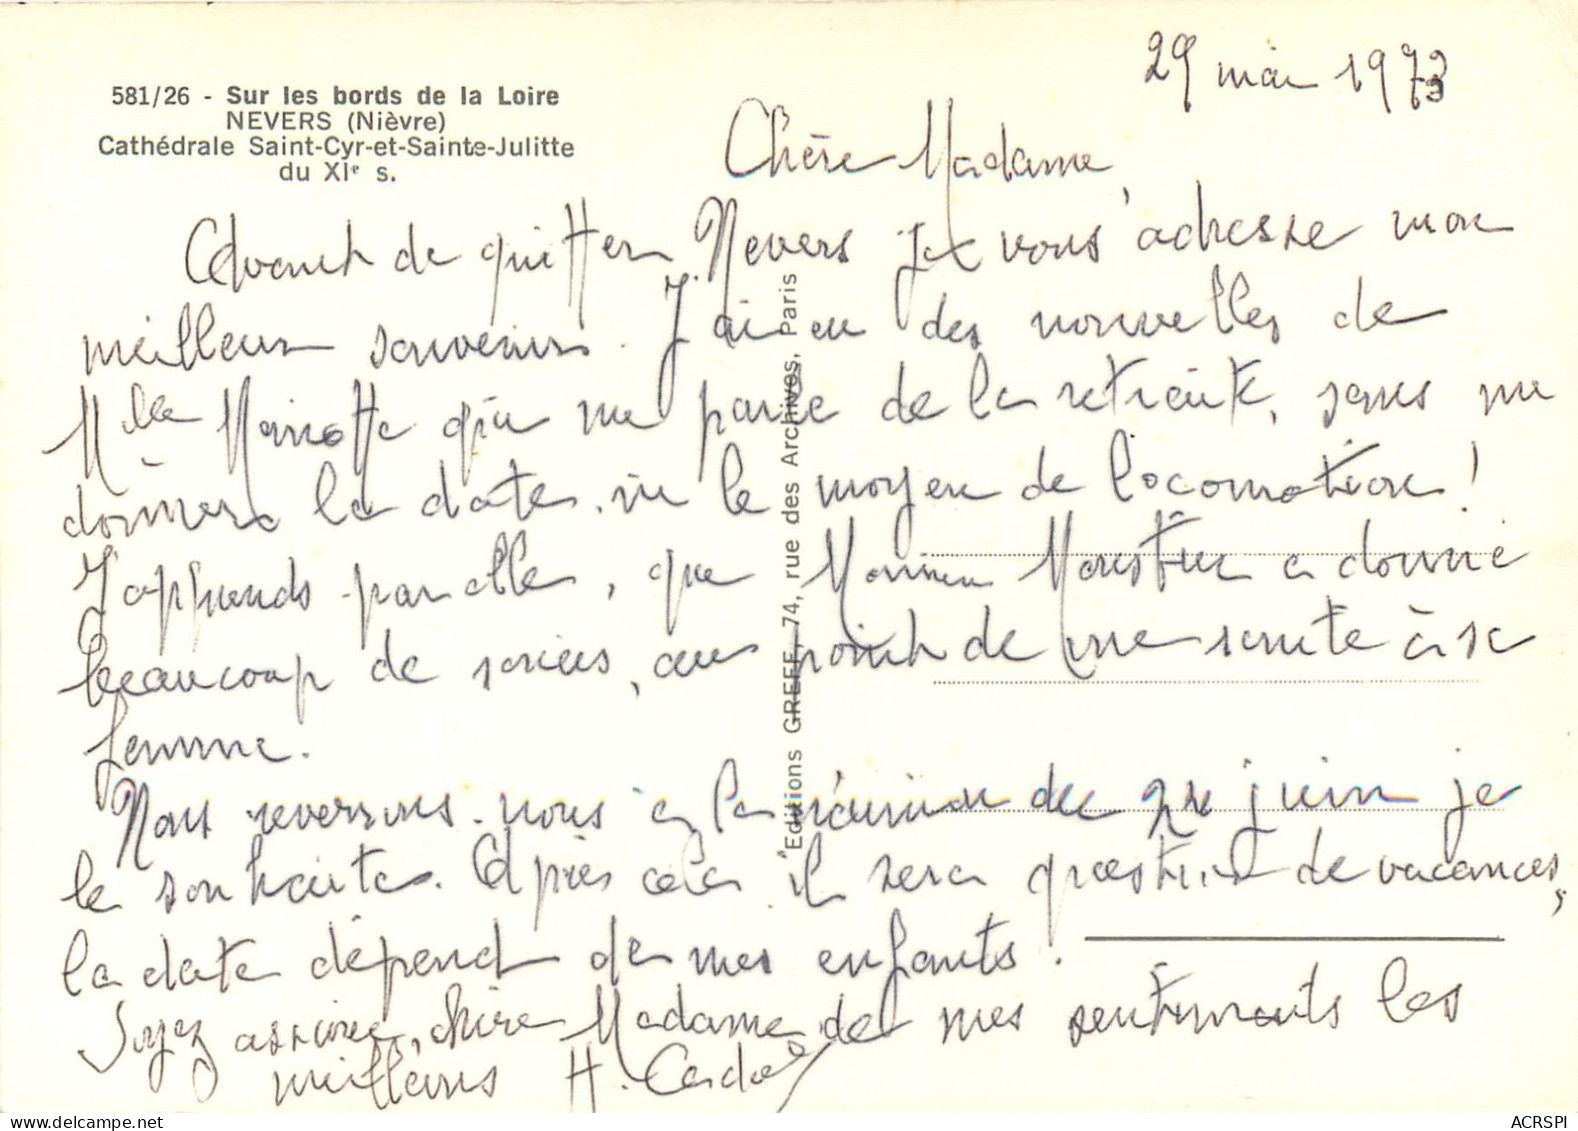 581/26 - Sur les bords de la Loire
NEVERS (Nièvre)
Cathédrale Saint-Cyr-et-Sainte-Julitte
du XIe s.
29 mai 1973
Chère Madame,
Avant de quitter Nevers je vous adresse mon
meilleur souvenir. J'ai eu des nouvelles de
Mlle Mariotte qui me parle de la retraite, sans me
donner la date ni le moyen de locomotion !
J'apprends par elle, que Monsieur a donné
beaucoup de soucis, au point de vue santé à sa
femme.
Nous reverrons-nous à la réunion de juin je
le souhaite. Après cela il sera question de vacances,
la date dépend de mes enfants.
Soyez assurée, chère Madame de mes sentiments les
meilleurs H.
"Editions GREFF", 74, rue des Archives, Paris
ACRSPI